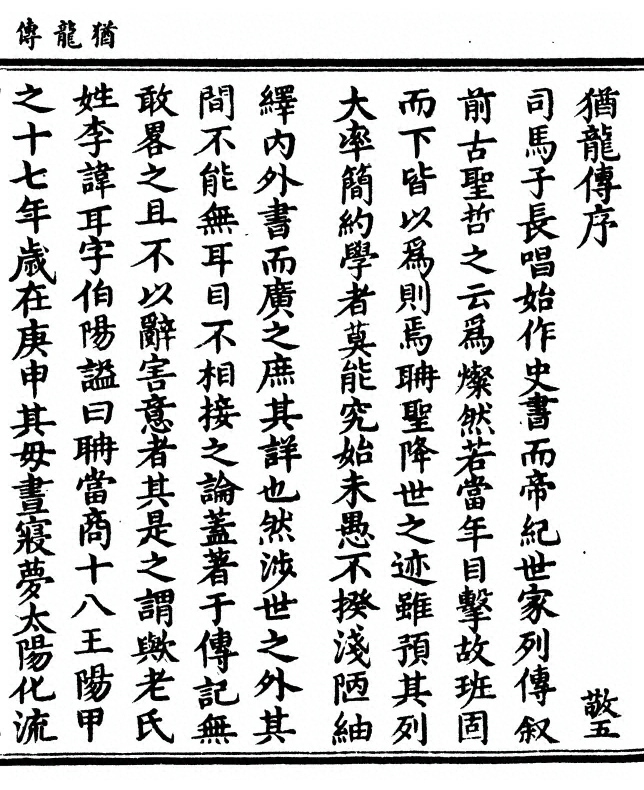 猶龍傳
猶龍傳序 敬五
司馬子長唱始作史書而帝紀世家列傳叙
前古聖哲之云爲燦然若當年目擊故班固
而下皆以爲則焉聃聖降世之迹雖預其列
大率簡約學者莫能究始末愚不揆淺陋紬
繹內外書而廣之庶其詳也然涉世之外其
間不能無耳目不相接之論蓋著于傳記無
敢畧之且不以辭害意者其是之謂歟老氏
姓李諱耳字伯陽謚曰聃當商十八王陽甲
之十七年歲在庚申其母晝寢夢太陽化流